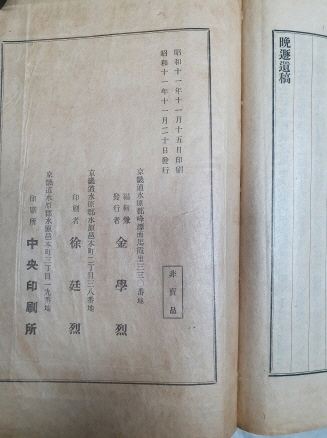 晩遯遺稿
昭和十一年十一月十五日印刷
昭和十一年十一月二十日發行
非賣品
京畿道水原郡峰潭面馬霞里三三〇番地
編輯兼
發行者 金學烈
京畿道水原郡水原邑本町二丁目三八番地
印刷者 徐廷烈
京畿道水原郡水原邑本町二丁目一九番地
印刷所 中央印刷所